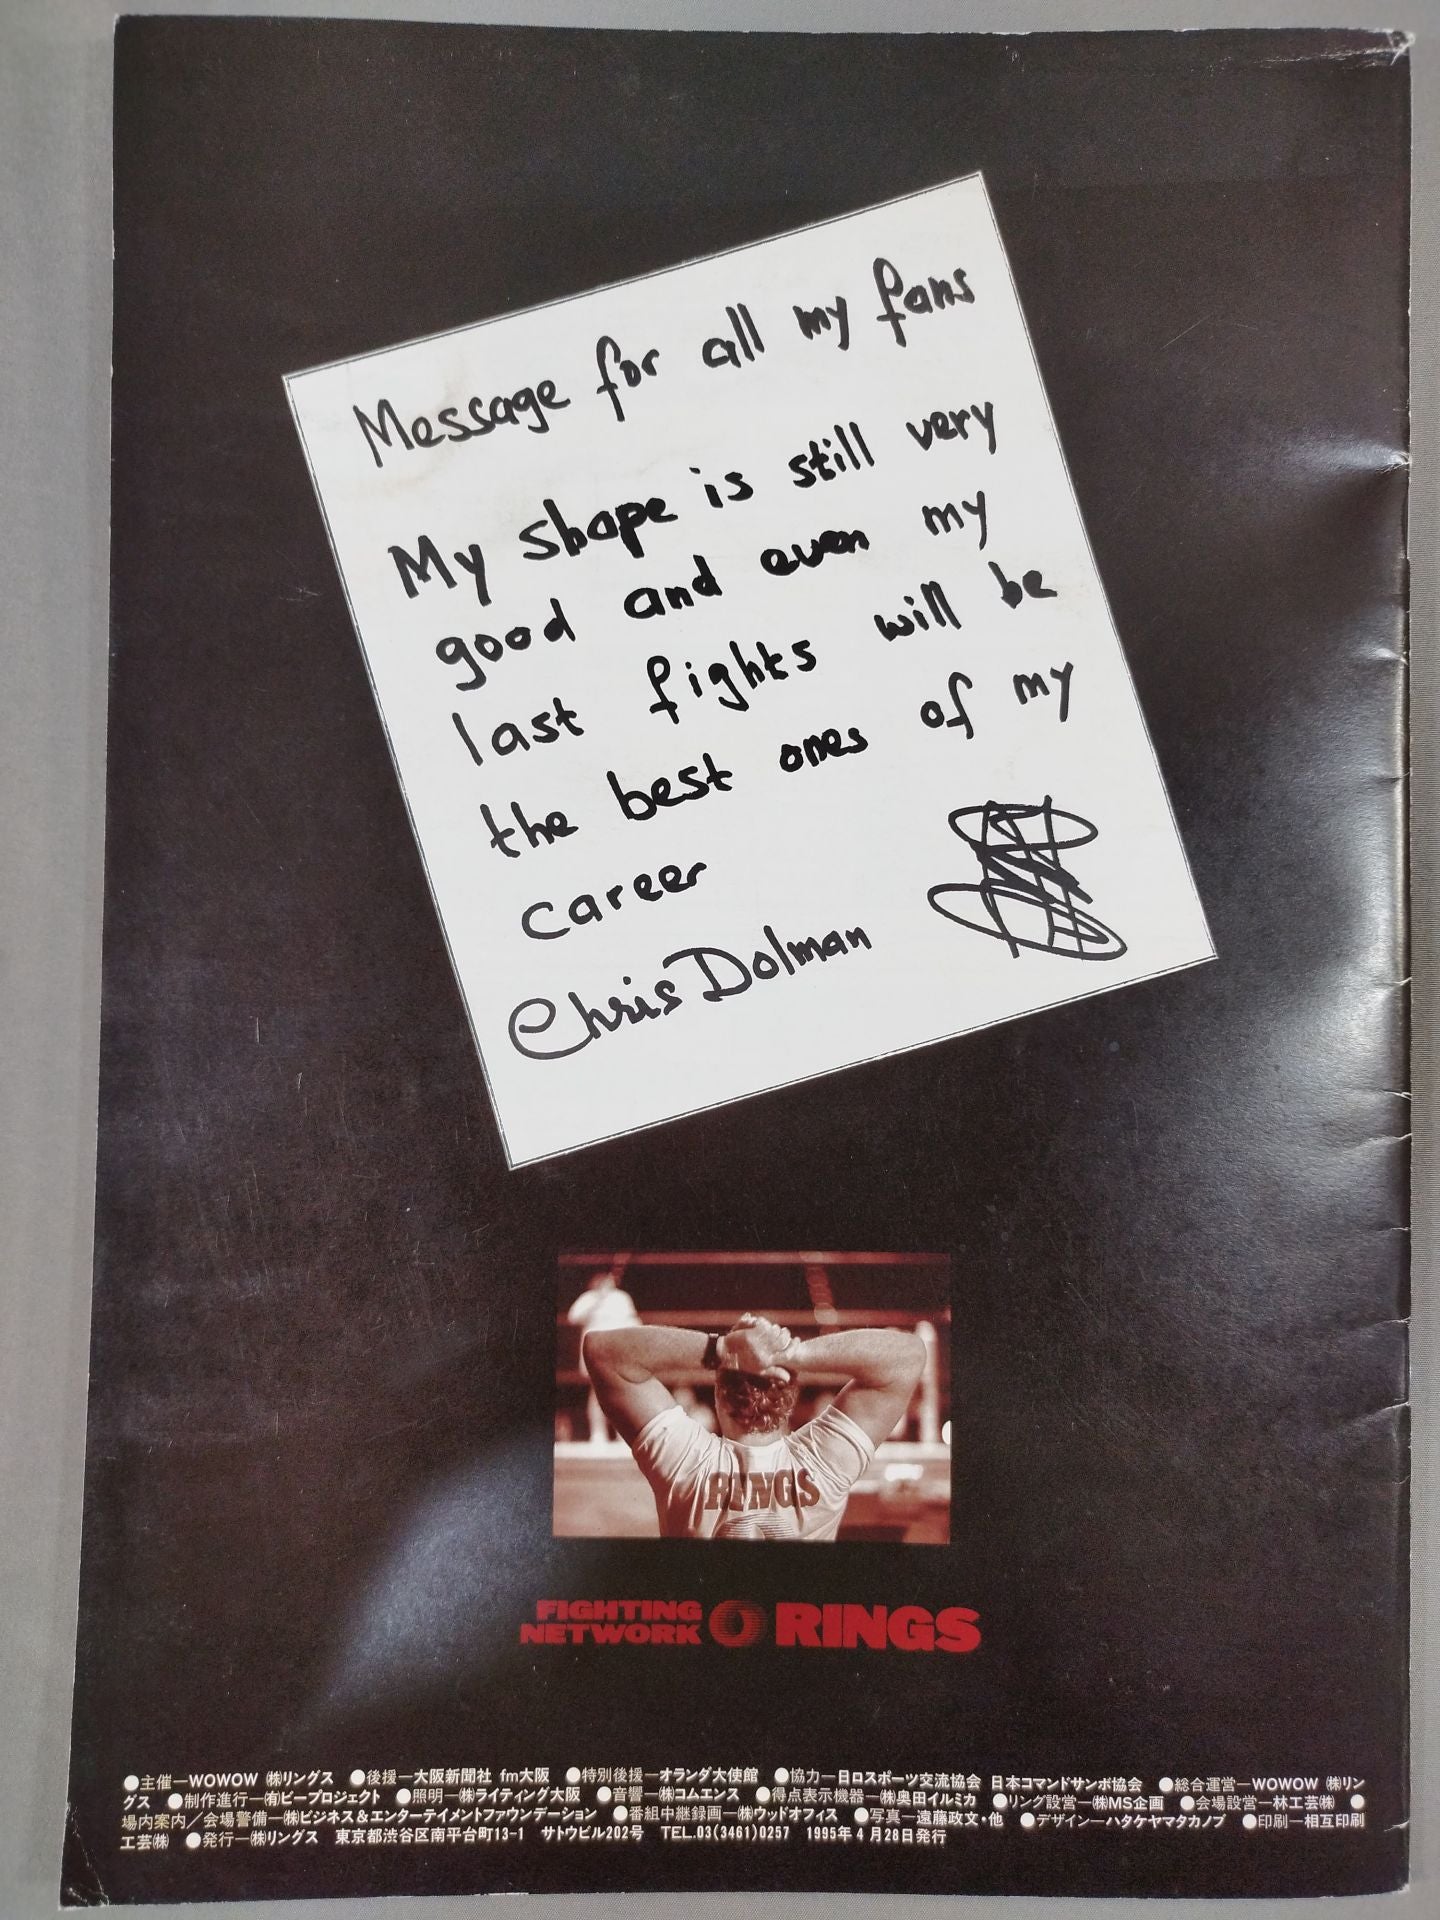 Message for all my fans
My shape is still very
good and even my
last fights will be
the best ones of my
career
Chris Dolman
RINGS
FIGHTING
NETWORK RINGS
●主催—WOWOW ㈱リングス ●後援—大阪新聞社 fm大阪 ●特別後援—オランダ大使館 ●協力—日ロスポーツ交流協会 日本コマンドサンボ協会 ●総合運営—WOWOW ㈱リン
グス ●制作進行—㈲ビープロジェクト ●照明—㈱ライティング大阪 ●音響—㈱コムエンス ●得点表示機器—㈱奥田イルミカ ●リング設営—㈱MS企画 ●会場設営—林工芸㈱ ●
場内案内／会場警備—㈱ビジネス＆エンターテイメントファウンデーション ●番組中継録画—㈱ウッドオフィス ●写真—遠藤政文・他 ●デザイン—ハタケヤマタカノブ ●印刷—相互印刷
工芸㈱ ●発行—㈱リングス 東京都渋谷区南平台町13-1 サトウビル202号 TEL.03(3461)0257 1995年4月28日発行